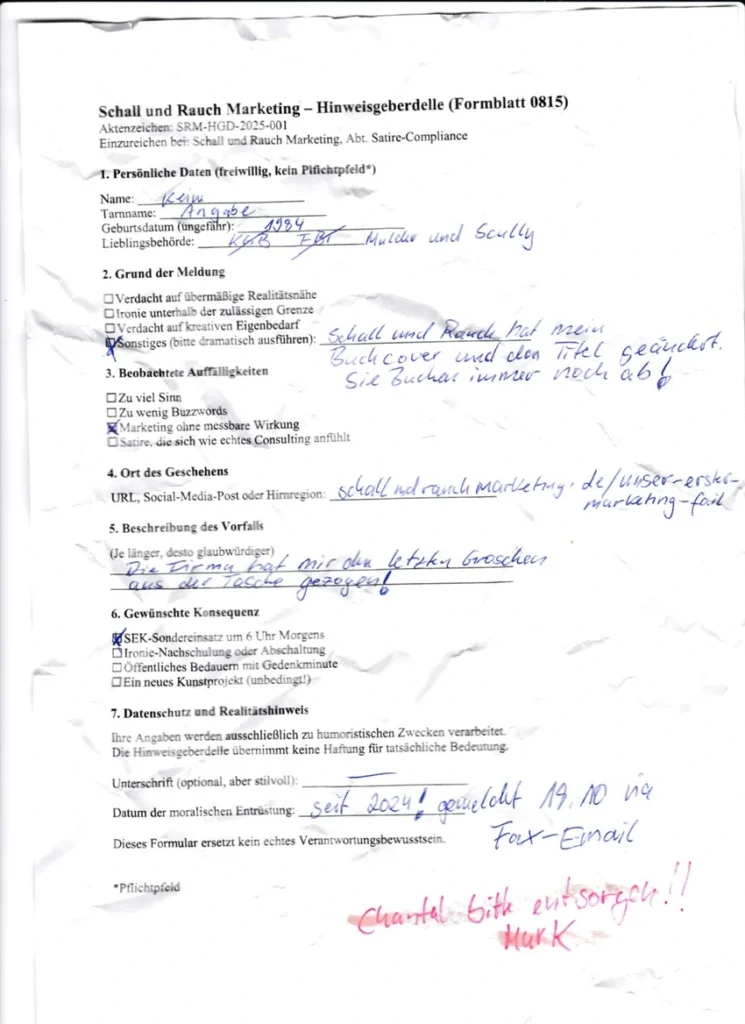 Schall und Rauch Marketing – Hinweisgeberdelle (Formblatt 0815)
Aktenzeichen: SRM-HGD-2025-001
Einzureichen bei: Schall und Rauch Marketing, Abt. Satire-Compliance
1. Persönliche Daten (freiwillig, kein Pflichtpfeld*)
Name: Kein
Tarnname: Angabe
Geburtsdatum (ungefähr): 1984
Lieblingsbehörde: KGB FBI Mulder und Scully
2. Grund der Meldung
☐ Verdacht auf übermäßige Realitätsnähe
☐ Ironie unterhalb der zulässigen Grenze
☐ Verdacht auf kreativen Eigenbedarf
☒ Sonstiges (bitte dramatisch ausführen): Schall und Rauch hat mein
Buchcover und den Titel geändert.
Sie Buchen immer noch ab!
3. Beobachtete Auffälligkeiten
☐ Zu viel Sinn
☐ Zu wenig Buzzwords
☒ Marketing ohne messbare Wirkung
☐ Satire, die sich wie echtes Consulting anfühlt
4. Ort des Geschehens
URL, Social-Media-Post oder Hirnregion: schallundrauchmarketing.de/unser-erster-
marketing-fail
5. Beschreibung des Vorfalls
(Je länger, desto glaubwürdiger)
Die Firma hat mir den letzten Groschen
aus der Tasche gezogen!
6. Gewünschte Konsequenz
☒ SEK-Sondereinsatz um 6 Uhr Morgens
☐ Ironie-Nachschulung oder Abschaltung
☐ Öffentliches Bedauern mit Gedenkminute
☐ Ein neues Kunstprojekt (unbedingt!)
7. Datenschutz und Realitätshinweis
Ihre Angaben werden ausschließlich zu humoristischen Zwecken verarbeitet.
Die Hinweisgeberdelle übernimmt keine Haftung für tatsächliche Bedeutung.
Unterschrift (optional, aber stilvoll): —
Datum der moralischen Entrüstung: seit 2024! gemeldet 19.10 via
Fax-Email
Dieses Formular ersetzt kein echtes Verantwortungsbewusstsein.
*Pflichtpfeld
Chantal bitte entsorgen!!
Mark